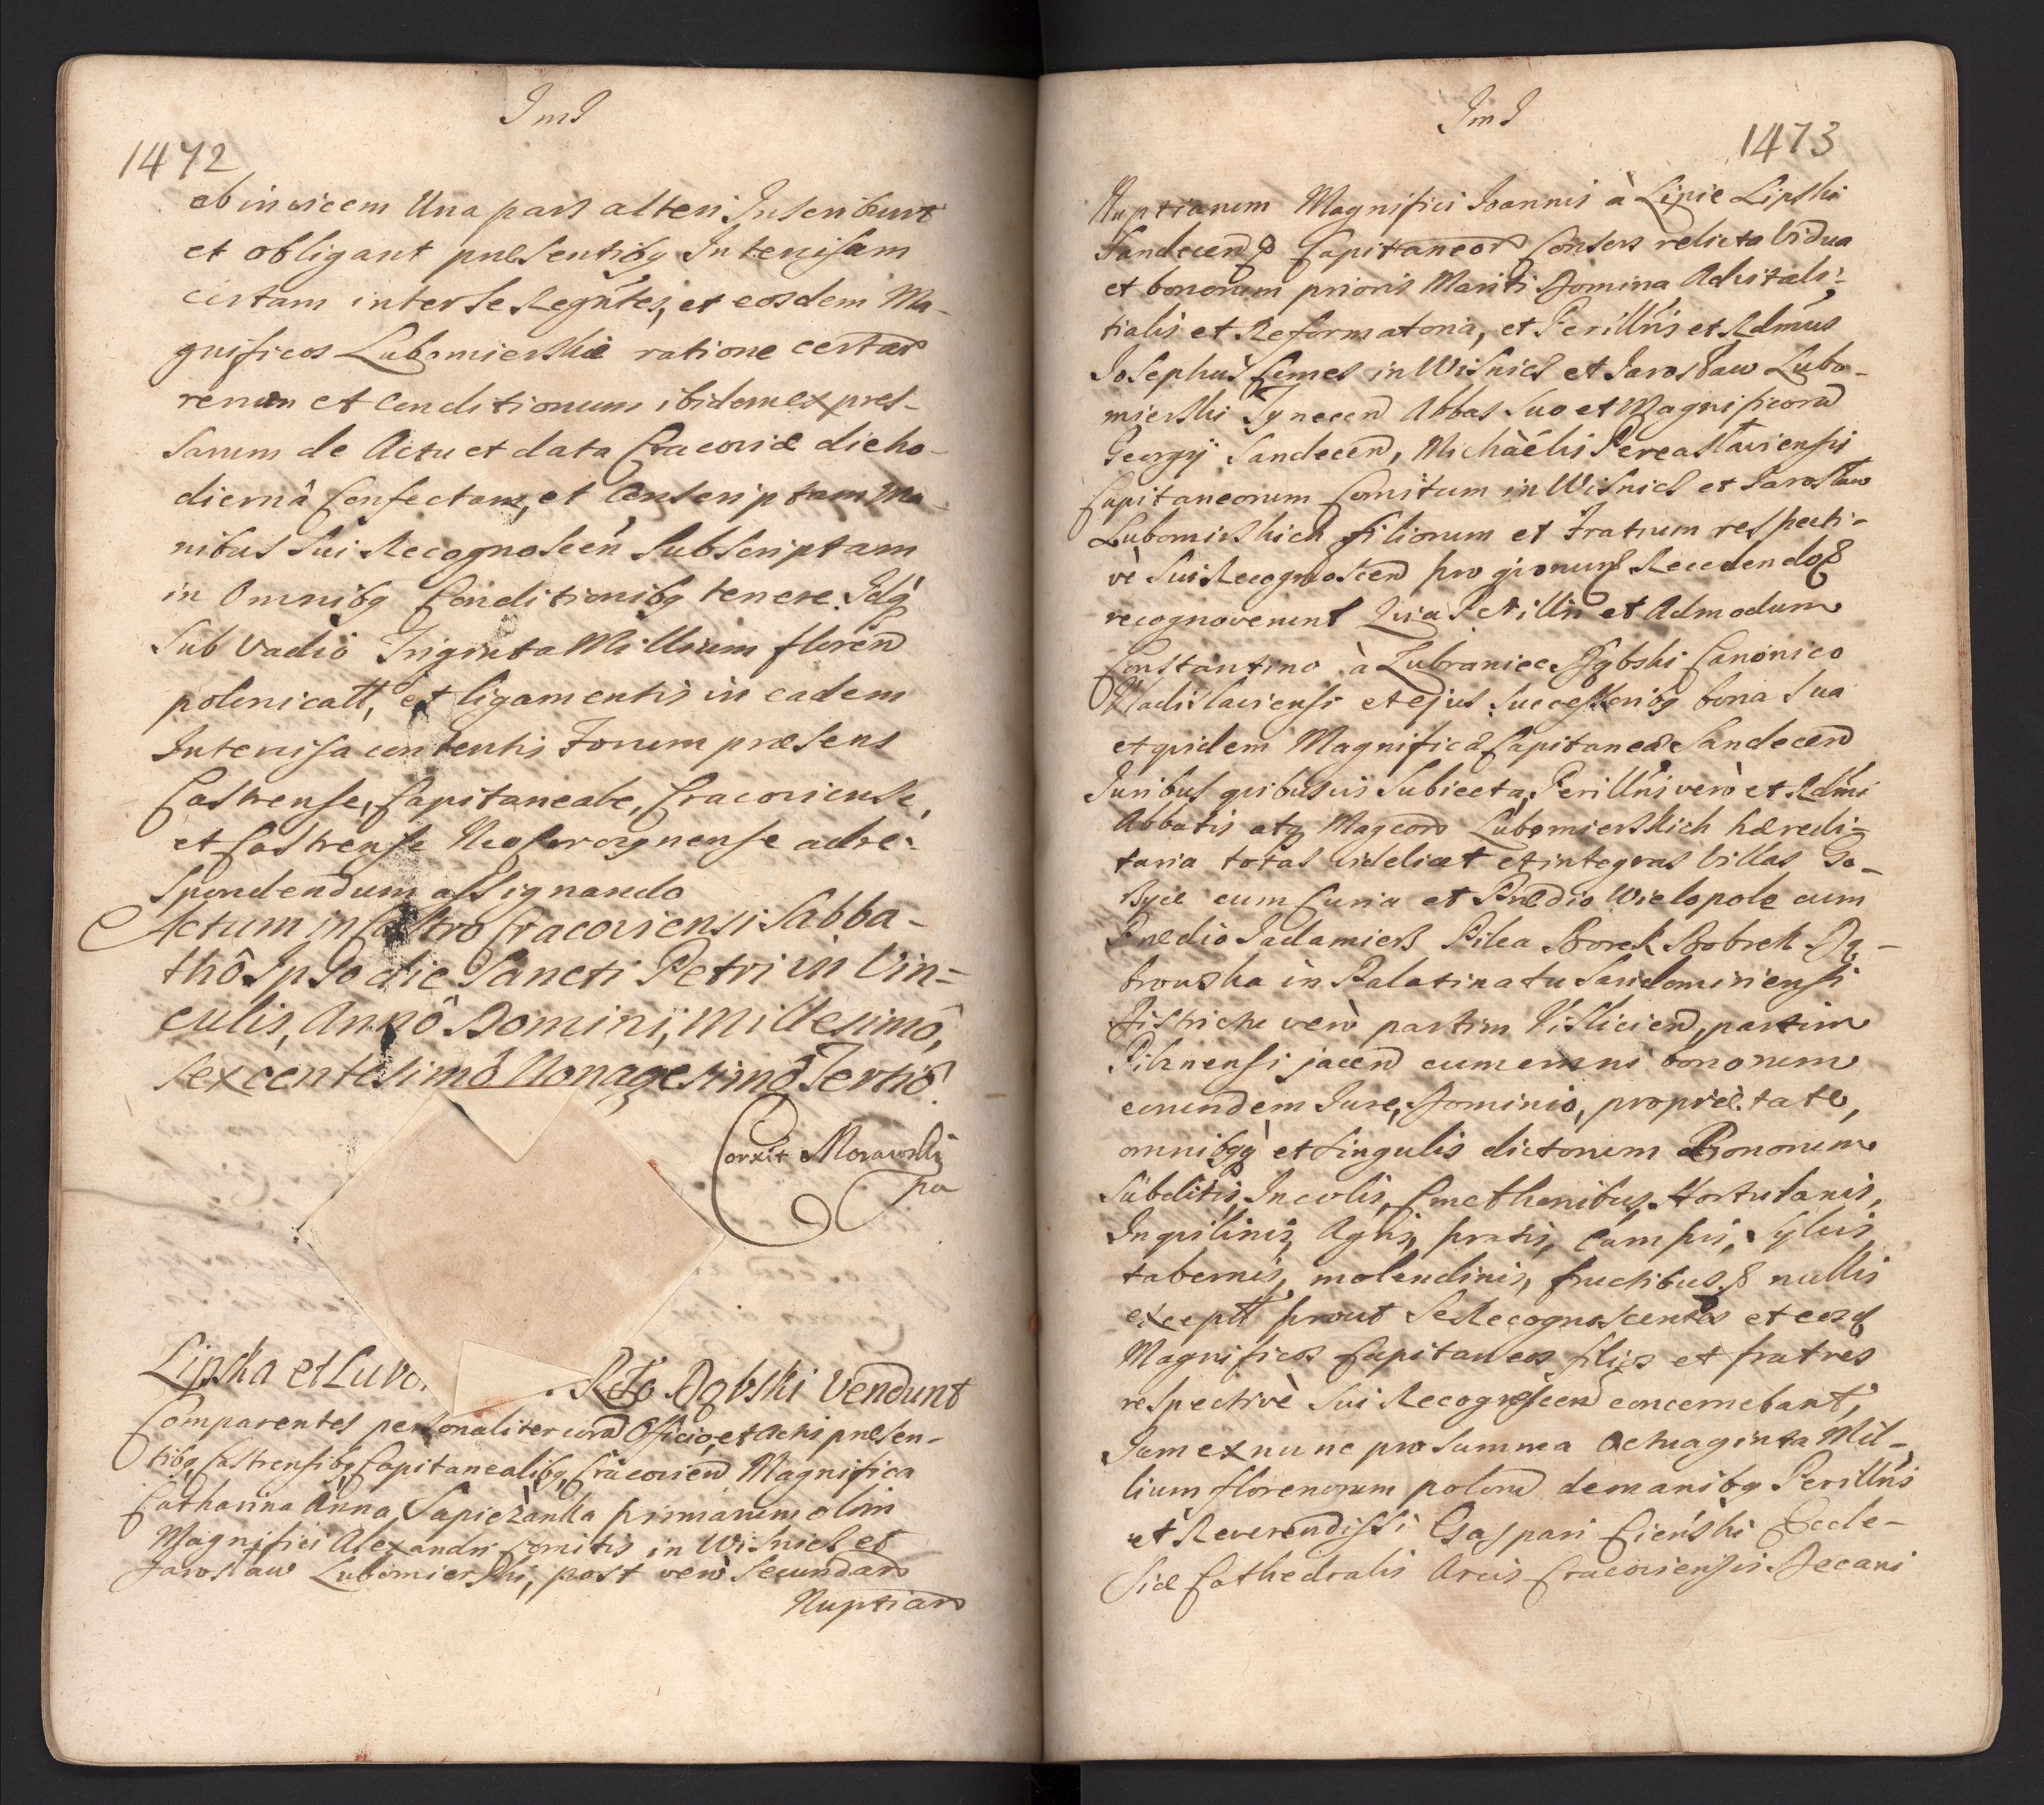 ImI
1472
ab invicem Una pars alteri Inscribunt
et obligant præsentibq Intercisam
certam inter se Regntes, et eosdem Ma-
gnificos Lubomierskie ratione certar
rerum et Conditionum ibidem expres-
sarum de Actu et data Cracoviæ die ho-
diernâ Confectam, et Conscriptam Ma-
nibus Sui Recognoscen Subscriptam
in Omnibq Conditionibq tenere. Idq
Sub Vadio Triginta Millium floren
polonicatt, et ligamentis in eadem
Intercisa contentis Forum præsens
Castrense, Capitaneale, Cracoviense,
et Castrense Neoforoygnense ad re-
spondendum assignando
Actum in Castro Cracoviensi Sabba-
thô Ipso die Sancti Petri in Vin-
culis, Annô Domini, Millesimô,
Sexcentesimô Nonagesimô Tertiô.
Corxit Morawski
pa
Lipska et Luvo. RTo Dąbski Vendunt
Comparentes personaliter coram Officio, et Actis præsen-
tibq Castrensibq Capitanealibq Cracovien Magnifica
Catharina Anna Sapiezanka primarum olim
Magnifici Alexandri Comitis in Wisnicz et
Jarosław Lubomierski, post verò Secundar
Nuptiar
ImI
1473
Nuptiarum Magnifici Ioannis à Lipie Lipski
Sandecen Capitaneor Consors relicta Vidua
et bonorum prioris Mariti Domina Advitali-
tialis et Reformatoria, et Perillris et Rdmus
Josephus Comes in Wisnicz et Jarosław Lubo-
mierski Tynecen Abbas Suo et Magnificoru
Georgij Sandecen, Michäelis Pereasłaviensis
Capitaneorum Comitum in Wisnicz et Jarosław
Lubomirskich filiorum et Fratrum respecti-
vè Sui Recognoscen pro gionum Recedendo
recognoverunt Quia Perillri et Admodum
Constantino à Lubraniec Dąbski Canonico
Vladislaviensi et ejus Successoribq bona Sua
et quidem Magnificæ Capitaneæ Sandecen
Juribus quibusvis Subiecta, Perillris verò et Rdmi
Abbatis atq Magcoru Lubomierskich hæredi-
taria totas videlicet et integras Villas Go-
Byce cum Curia et Prædio Wielopole cum
Prædio Jadamierz Pilca Borek Bobrek Dą-
browska in Palatinatu Sandomiriensi
Districtu verò partim Vislicien, partim
Pilznensi jacen cum omni bonorum
eorundem Jure, Dominio, proprietate,
omnibqq et Singulis dictorum Bonorum
Subditis, Incolis, Cmethonibus, Hortulanis,
Inquilinis, Agris, pratis, Campis, Sylvis,
tabernis, molendinis, fructibus & nullis
exceptt prout Se Recognoscentes et eosd
Magnificos Capitaneos filios et fratres
respectivè Sui Recognoscen concernebant,
Jam ex nunc pro Summa Octuaginta Mil-
lium florenorum polon de manibq Perillris
et Reverendissi Gaspari Cieński Eccle-
siæ Cathedralis Arcis Cracoviensis Decani